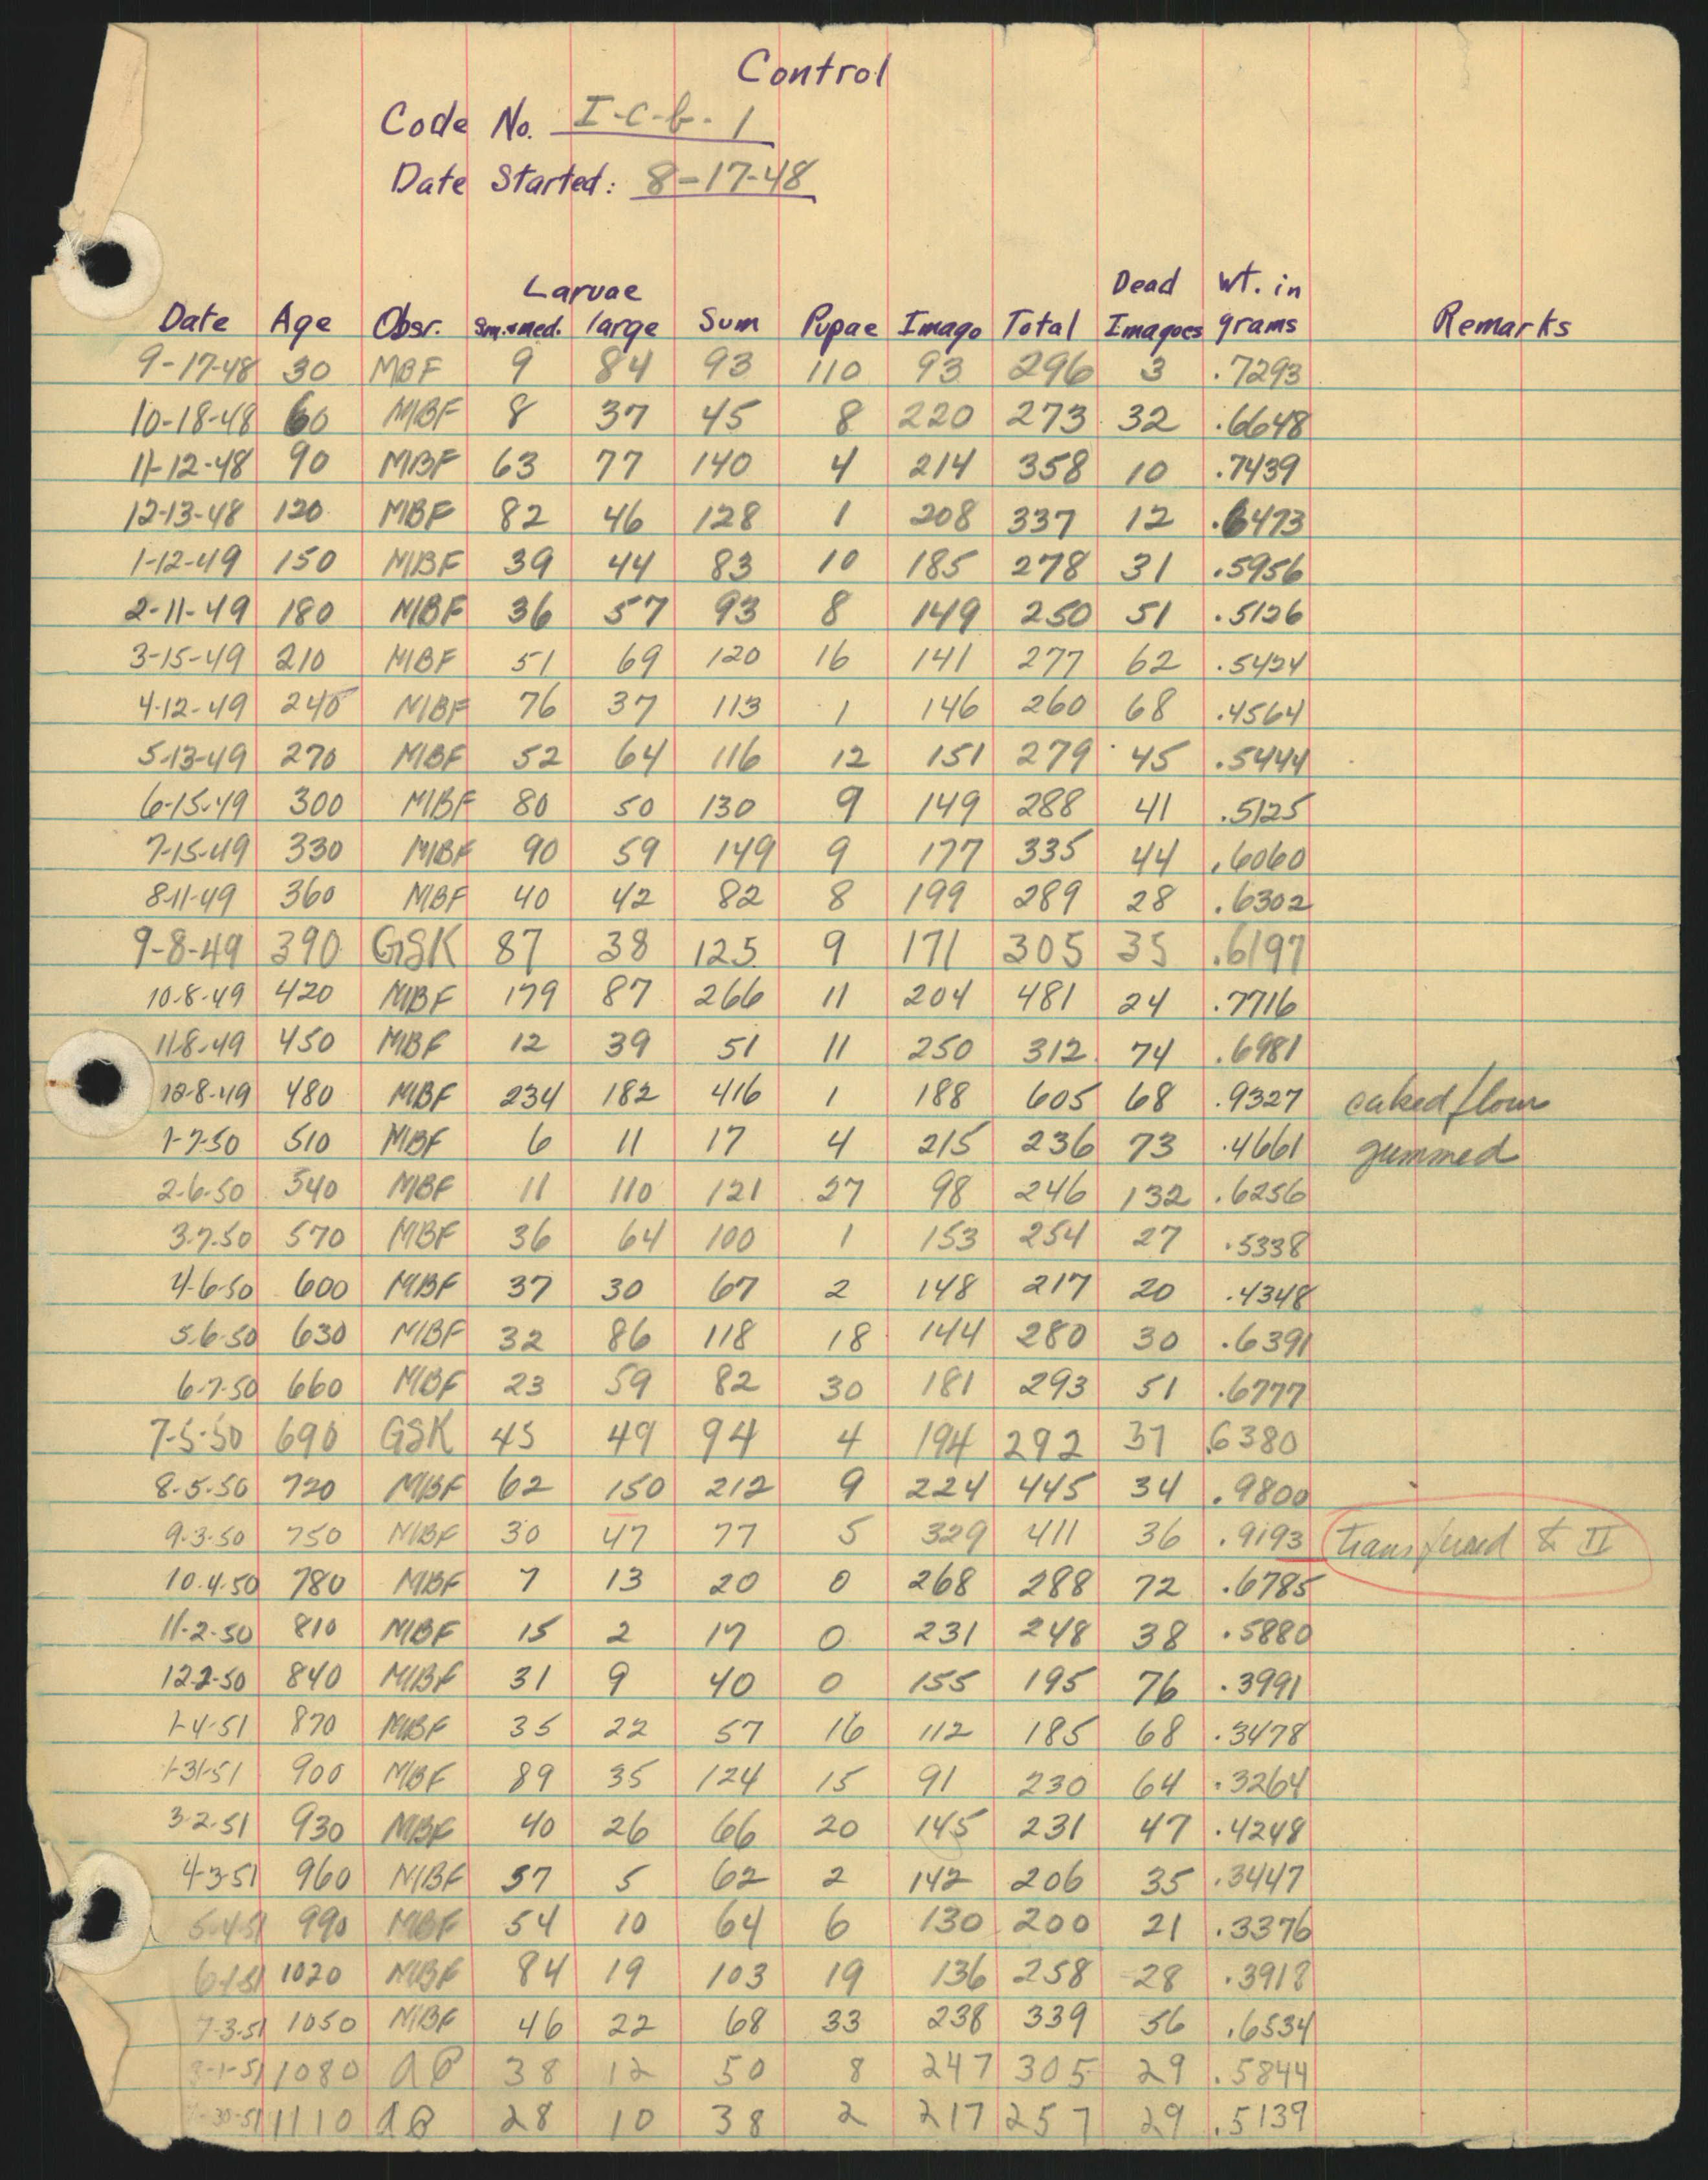 Control
Code No. I-c-b-1
Date Started: 8-17-48
Larvae Dead Wt. in
Date Age Obsr. Sm.+med. large Sum Pupae Imago Total Imagoes grams Remarks
9-17-48 30 MBF 9 84 93 110 93 296 3 .7293
10-18-48 60 MBF 8 37 45 8 220 273 32 .6648
11-12-48 90 MBF 63 77 140 4 214 358 10 .7439
12-13-48 120 MBF 82 46 128 1 208 337 12 .6473
1-12-49 150 MBF 39 44 83 10 185 278 31 .5956
2-11-49 180 MBF 36 57 93 8 149 250 51 .5126
3-15-49 210 MBF 51 69 120 16 141 277 62 .5424
4-12-49 240 MBF 76 37 113 1 146 260 68 .4564
5-13-49 270 MBF 52 64 116 12 151 279 45 .5444
6-15-49 300 MBF 80 50 130 9 149 288 41 .5125
7-15-49 330 MBF 90 59 149 9 177 335 44 .6060
8-11-49 360 MBF 40 42 82 8 199 289 28 .6302
9-8-49 390 GSK 87 38 125 9 171 305 35 .6197
10-8-49 420 MBF 179 87 266 11 204 481 24 .7716
11-8-49 450 MBF 12 39 51 11 250 312 74 .6981
12-8-49 480 MBF 234 182 416 1 188 605 68 .9327 caked flour
1-7-50 510 MBF 6 11 17 4 215 236 73 .4661 gummed
2-6-50 540 MBF 11 110 121 27 98 246 132 .6256
3-7-50 570 MBF 36 64 100 1 153 254 27 .5338
4-6-50 600 MBF 37 30 67 2 148 217 20 .4348
5-6-50 630 MBF 32 86 118 18 144 280 30 .6391
6-7-50 660 MBF 23 59 82 30 181 293 51 .6777
7-5-50 690 GSK 45 49 94 4 194 292 37 .6380
8-5-50 720 MBF 62 150 212 9 224 445 34 .9800
9-3-50 750 MBF 30 47 77 5 329 411 36 .9193 transferred to II
10-4-50 780 MBF 7 13 20 0 268 288 72 .6785
11-2-50 810 MBF 15 2 17 0 231 248 38 .5880
12-2-50 840 MBF 31 9 40 0 155 195 76 .3991
1-4-51 870 MBF 35 22 57 16 112 185 68 .3478
1-31-51 900 MBF 89 35 124 15 91 230 64 .3264
3-2-51 930 MBF 40 26 66 20 145 231 47 .4248
4-3-51 960 MBF 57 5 62 2 142 206 35 .3447
5-4-51 990 MBF 54 10 64 6 130 200 21 .3376
6-1-51 1020 MBF 84 19 103 19 136 258 28 .3918
7-3-51 1050 MBF 46 22 68 33 238 339 56 .6534
8-1-51 1080 38 12 50 8 247 305 29 .5844
-30-51 1110 28 10 38 2 217 257 29 .5139